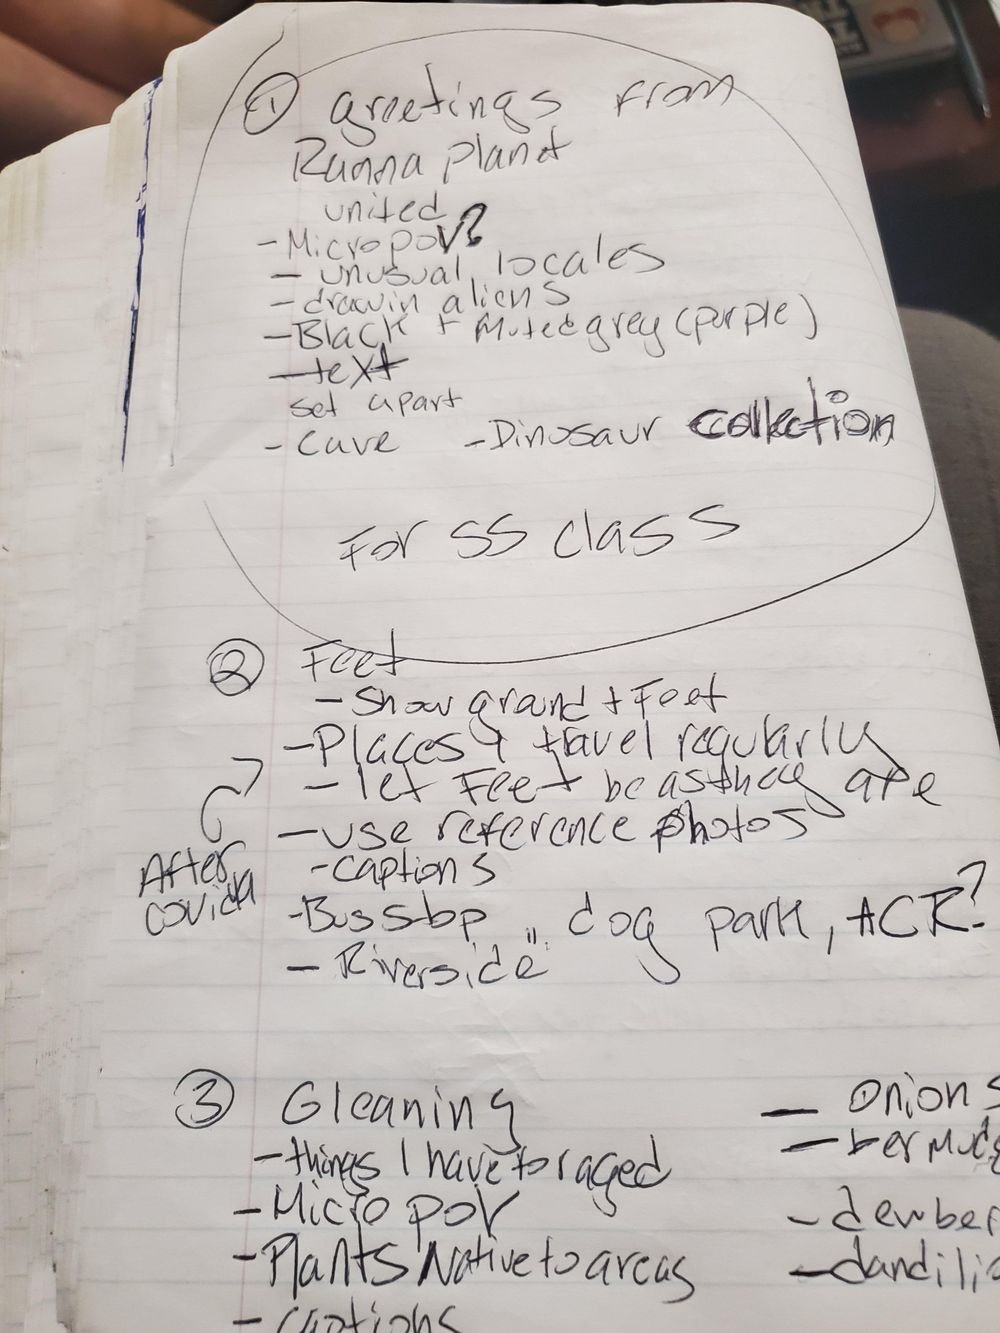 ① greetings from
Ranna planet
united
- Micro POV?
- unusual locales
- drawin aliens
- Black + Muted grey (purple)
- text
set apart
- Cave - Dinosaur collection
For SS class
② Feet
- Show ground + Feet
- Places I travel regularly
- let Feet be as they are
- use reference photos
After
covid
- captions
- Bus stop, dog park, ACR?
- Riverside
③ Gleaning
- things I have foraged
- Micro POV
- Plants Native to areas
- captions
- onions
- bermud
- dewber
- dandili